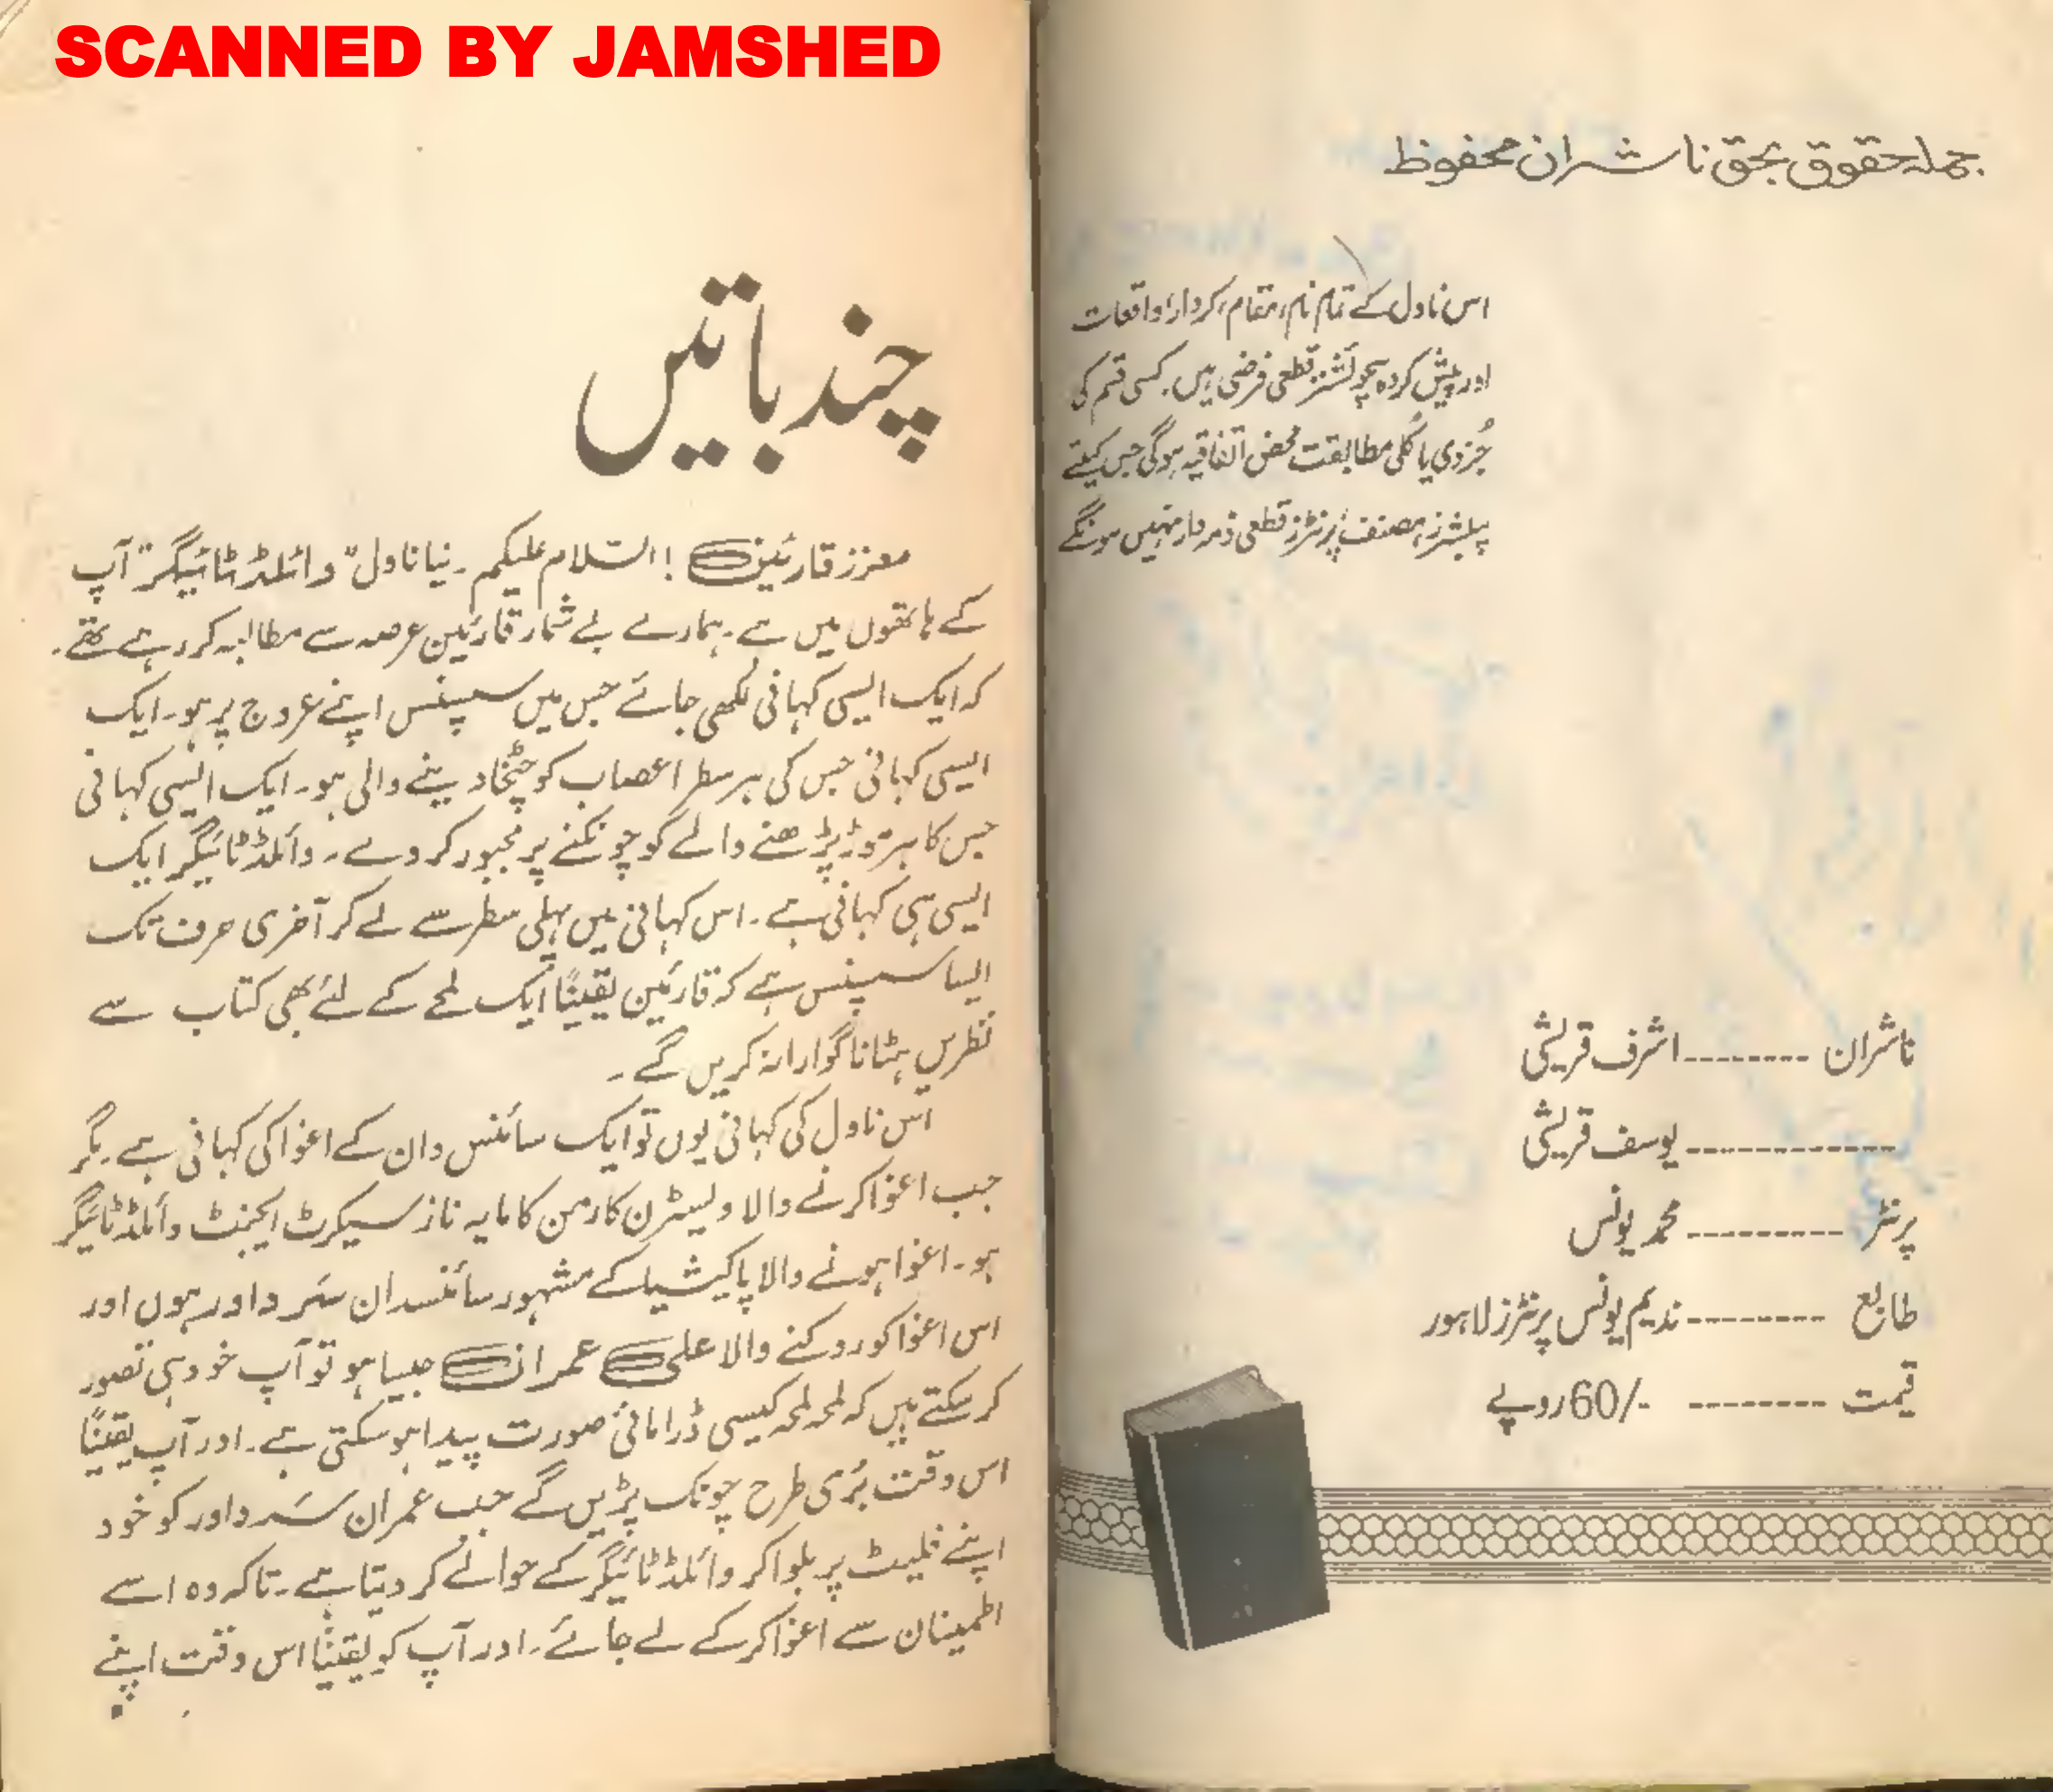 SCANNED BY JAMSHED
جملہ حقوق بحق ناشران محفوظ
اس ناول کے تمام نام، مقام، کردار، واقعات
اور پیش کردہ سچوئشنز قطعی فرضی ہیں۔ کسی قسم کی
جُزوی یا کُلی مطابقت محض اتفاقیہ ہوگی جس کیلئے
پبلشرز، مصنف، پرنٹرز قطعی ذمہ دار نہیں ہونگے
ناشران -------- اشرف قریشی
------------- یوسف قریشی
پرنٹر --------- محمد یونس
طابع -------- ندیم یونس پرنٹرز لاہور
قیمت -------- 60/- روپے
چند باتیں
معزز قارئین! السّلام علیکم۔ نیا ناول "وائلڈ ٹائیگر" آپ
کے ہاتھوں میں ہے۔ ہمارے بے شمار قارئین عرصہ سے مطالبہ کر رہے تھے۔
کہ ایک ایسی کہانی لکھی جائے جس میں سسپنس اپنے عروج پر ہو۔ ایک
ایسی کہانی جس کی ہر سطر اعصاب کو چٹخا دینے والی ہو۔ ایک ایسی کہانی
جس کا ہر موڑ پڑھنے والے کو چونکنے پر مجبور کر دے۔ وائلڈ ٹائیگر ایک
ایسی ہی کہانی ہے۔ اس کہانی میں پہلی سطر سے لے کر آخری حرف تک
ایسا سسپنس ہے کہ قارئین یقیناً ایک لمحے کے لئے بھی کتاب سے
نظریں ہٹانا گوارا نہ کریں گے۔
اس ناول کی کہانی یوں تو ایک سائنس دان کے اغوا کی کہانی ہے۔ مگر
جب اغوا کرنے والا ویسٹرن کارمن کا مایہ ناز سیکرٹ ایجنٹ وائلڈ ٹائیگر
ہو۔ اغوا ہونے والا پاکیشیا کے مشہور سائنسدان سَرداور ہوں اور
اس اغوا کو روکنے والا علی عمران جیسا ہو تو آپ خود ہی تصور
کر سکتے ہیں کہ لمحہ لمحہ کیسی ڈرامائی صورت پیدا ہو سکتی ہے۔ اور آپ یقیناً
اس وقت بُری طرح چونک پڑیں گے جب عمران سَرداور کو خود
اپنے فلیٹ پر بلوا کر وائلڈ ٹائیگر کے حوالے کر دیتا ہے۔ تاکہ وہ اسے
اطمینان سے اغوا کرکے لے جائے۔ اور آپ کو یقیناً اس وقت اپنے